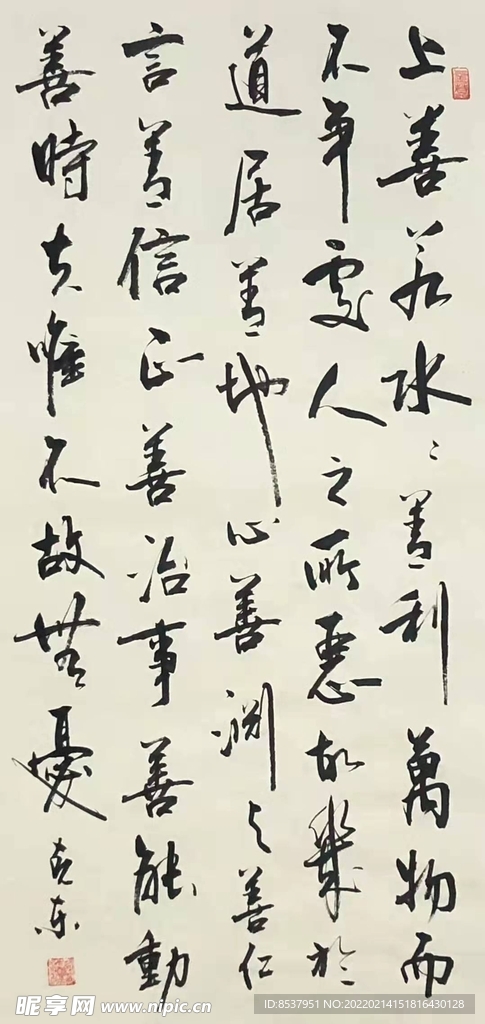 上善若水〻善利萬物而
不争處人之所惡故幾於
道居善地心善淵与善仁
言善信正善治事善能動
善時夫唯不故無憂
克东
昵享网 www.nipic.cn
ID:8537951 NO:20220214151816430128